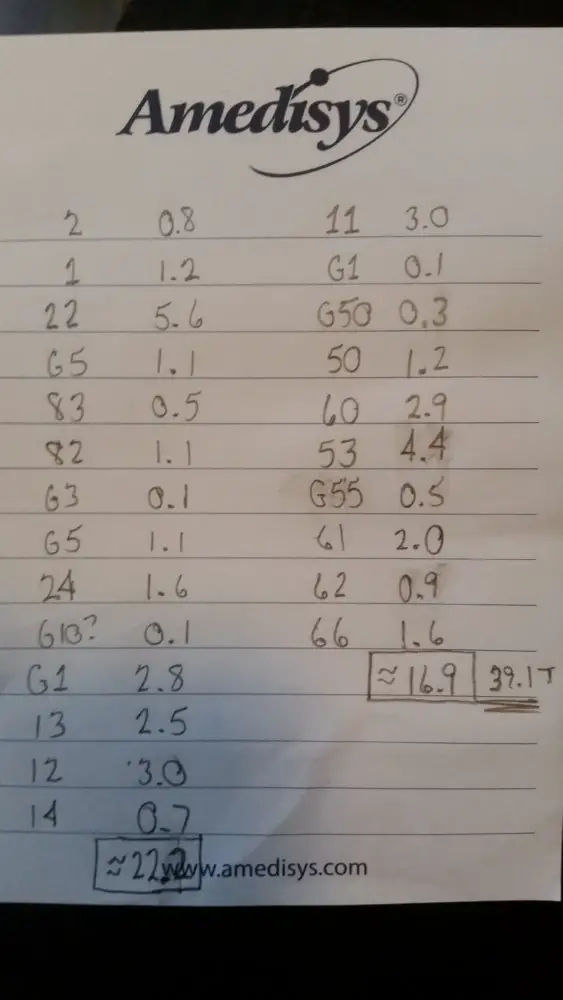 Amedisys®
2 0.8
1 1.2
22 5.6
G5 1.1
83 0.5
82 1.1
G3 0.1
G5 1.1
24 1.6
G13? 0.1
G1 2.8
13 2.5
12 3.0
14 0.7
≈22.2
11 3.0
G1 0.1
G50 0.3
50 1.2
60 2.9
53 4.4
G55 0.5
61 2.0
62 0.9
66 1.6
≈16.9 39.1T
www.amedisys.com